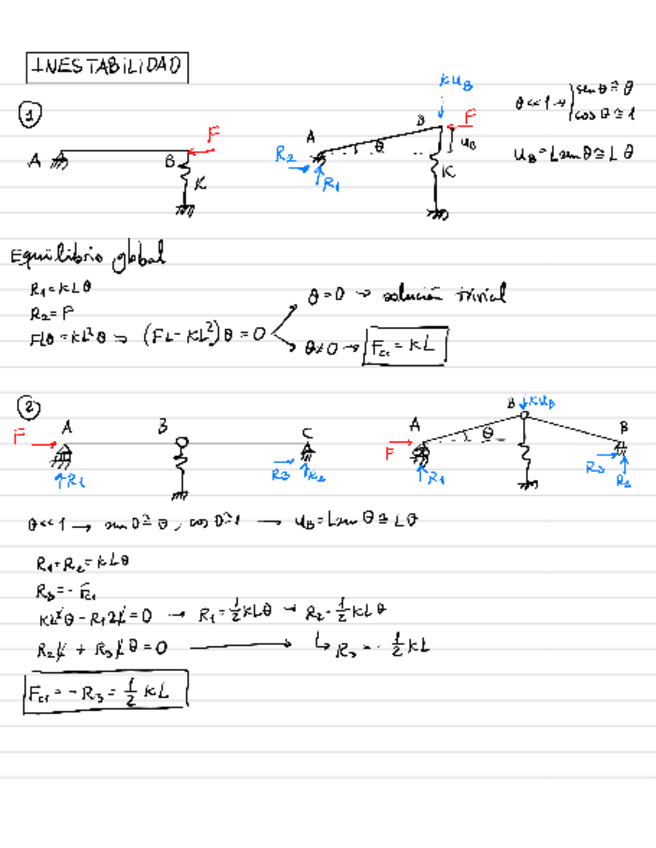 INESTABILIDAD
1
A
B
F
K
KUB
A
B
F
θ
UB
R2
R1
K
θ<<1 → senθ≅θ
cosθ≅1
UB=Lsenθ≅Lθ
Equilibrio global
R1=KLθ
R2=F
FLθ=KL²θ ⇒ (FL-KL²)θ=0
θ=0 → solución trivial
θ≠0 → Fcr=KL
2
F
A
B
C
R1
R3
R2
A
B
KUB
θ
B
F
R1
R3
R2
θ<<1 → senθ≅θ, cosθ≅1 → UB=Lsenθ≅Lθ
R1+R2=KLθ
R3=-Fcr
KL²θ-R12L=0 → R1=1/2KLθ → R2=1/2KLθ
R2L+R3Lθ=0 → R3=-1/2KL
Fcr=-R3=1/2KL